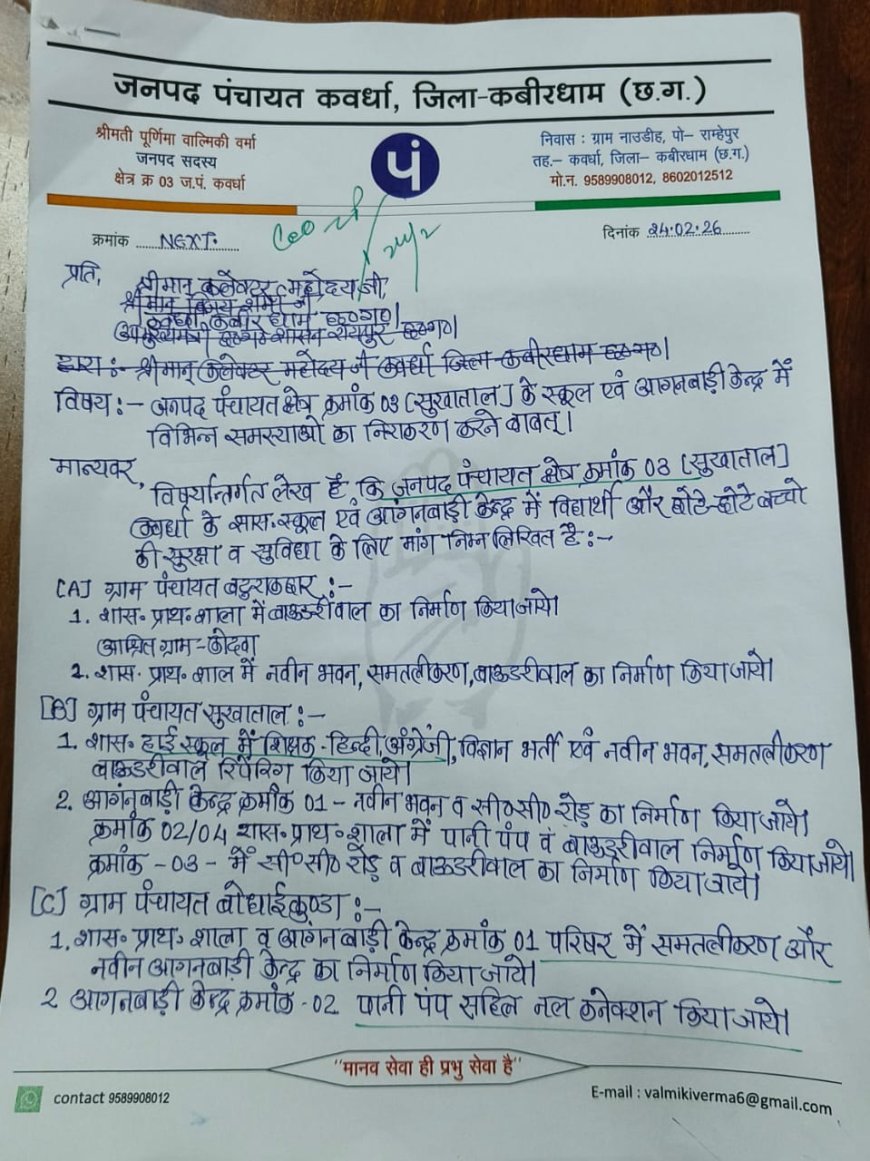 जनपद पंचायत कवर्धा, जिला-कबीरधाम (छ.ग.)
श्रीमती पूर्णिमा वाल्मिकी वर्मा
जनपद सदस्य
क्षेत्र क्र 03 ज.पं. कवर्धा
पं
निवास : ग्राम नाउडीह, पो– राम्हेपुर
तह.– कवर्धा, जिला– कबीरधाम (छ.ग.)
मो.न. 9589908012, 8602012512
क्रमांक NEXT.
दिनांक 24.02.26
प्रति,
श्रीमान् कलेक्टर महोदय जी,
श्रीमान विजय शर्मा जी
कवर्धा कबीरधाम छ०ग०।
उपमुख्यमंत्री छ०ग० शासन रायपुर छ०ग०।
द्वारा :- श्रीमान् कलेक्टर महोदय जी कवर्धा जिला-कबीरधाम छ०ग०।
विषय :- जनपद पंचायत क्षेत्र क्रमांक 03 [सुखाताल] के स्कूल एवं आगनबाड़ी केन्द्र में
विभिन्न समस्याओ का निराकरण करने बाबत्।
मान्यवर,
विषर्यान्तर्गत लेख है कि जनपद पंचायत क्षेत्र क्रमांक 03 [सुखाताल]
कवर्धा के शास. स्कूल एवं आगंनबाड़ी केन्द्र में विद्यार्थी और छोटे-छोटे बच्चो
की सुरक्षा व सुविधा के लिए मांग निम्न लिखित है :-
[A] ग्राम पंचायत बटुराकछार :-
1. शास॰ प्राथ॰ शाला में बाऊडरीवाल का निर्माण किया जाये।
आश्रित ग्राम-कोदवा
2. शास॰ प्राथ॰ शाल में नवीन भवन, समतलीकरण, बाऊडरीवाल का निर्माण किया जाये।
[B] ग्राम पंचायत सुखाताल :-
1. शास॰ हाई स्कूल में शिक्षक - हिन्दी, अंग्रेजी, विज्ञान भर्ती एवं नवीन भवन, समतलीकरण
बाऊडरीवाल रिपेरिंग किया जाये।
2. आगंनबाड़ी केन्द्र क्रमांक 01 - नवीन भवन व सी०सी० रोड़ का निर्माण किया जाये।
क्रमांक 02/04 शास॰ प्राथ॰ शाला में पानी पंप व बाऊडरीवाल निर्माण किया जाये।
क्रमांक - 03 - में सी०सी० रोड़ व बाऊडरीवाल का निर्माण किया जाये।
[C] ग्राम पंचायत बोधाईकुण्डा :-
1. शास॰ प्राथ॰ शाला व आंगनबाड़ी केन्द्र क्रमांक 01 परिषर में समतलीकरण और
नवीन आगनबाड़ी केन्द्र का निर्माण किया जाये।
2 आगनबाड़ी केन्द्र क्रमांक - 02 पानी पंप सहित नल कनेक्शन किया जाये।
"मानव सेवा ही प्रभु सेवा है"
contact 9589908012
E-mail : valmikiverma6@gmail.com